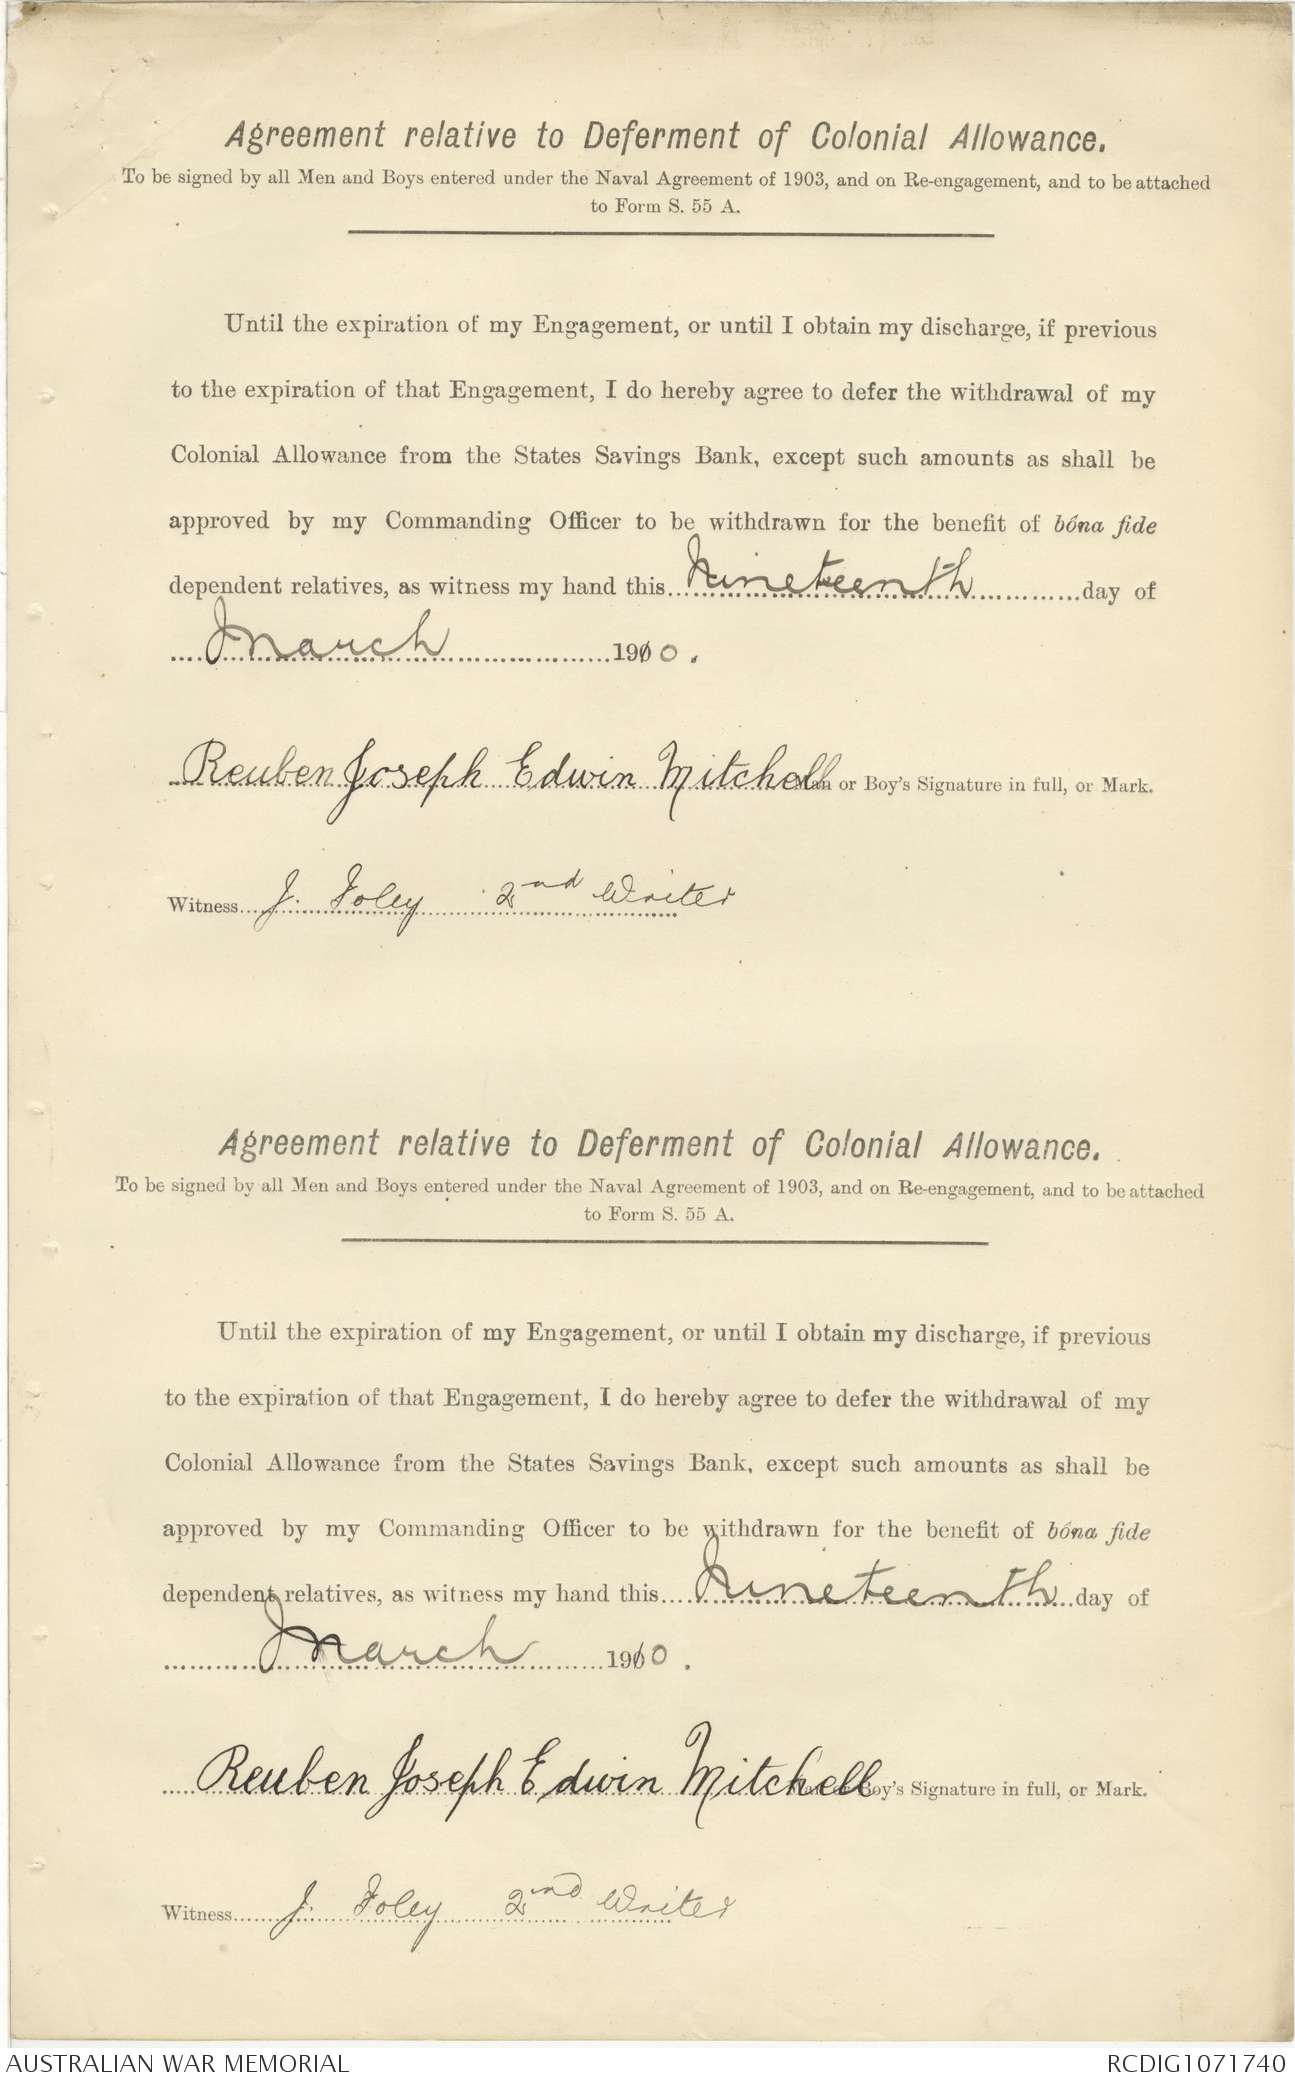 Agreement relative to Deferment of Colonial Allowance.
To be signed by all Men and Boys entered under the Naval Agreement of 1903, and on Re-engagement, and to be attached
to Form S. 55 A.
Until the expiration of my Engagement, or until I obtain my discharge, if previous
to the expiration of that Engagement, I do hereby agree to defer the withdrawal of my
Colonial Allowance from the States Savings Bank, except such amounts as shall be
approved by my Commanding Officer to be withdrawn for the benefit of bóna fide
dependent relatives, as witness my hand this Nineteenth day of
March 1910.
Reuben Joseph Edwin Mitchell Man or Boy's Signature in full, or Mark.
Witness J. Foley 2nd Writer
Agreement relative to Deferment of Colonial Allowance.
To be signed by all Men and Boys entered under the Naval Agreement of 1903, and on Re-engagement, and to be attached
to Form S. 55 A.
Until the expiration of my Engagement, or until I obtain my discharge, if previous
to the expiration of that Engagement, I do hereby agree to defer the withdrawal of my
Colonial Allowance from the States Savings Bank, except such amounts as shall be
approved by my Commanding Officer to be withdrawn for the benefit of bóna fide
dependent relatives, as witness my hand this Nineteenth day of
March 1910.
Reuben Joseph Edwin Mitchell Man or Boy's Signature in full, or Mark.
Witness J. Foley 2nd Writer
AUSTRALIAN WAR MEMORIAL RCDIG1071740